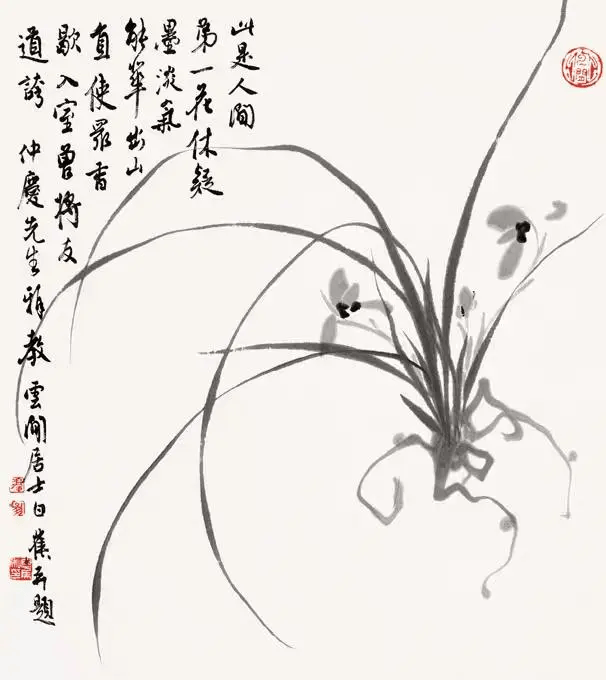 此是人間
第一花休疑
墨淡氣
能華出山
直使眾香
歇入室曾將友
道誇 仲慶先生雅教 雲間居士白蕉并題